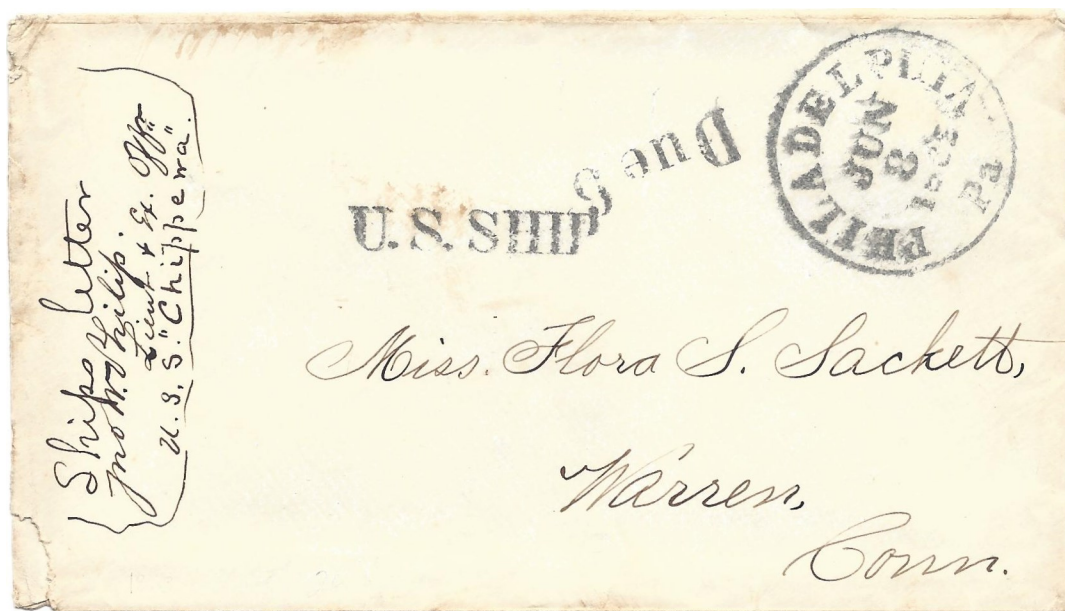 Ships Letter
Jno W. Philip.
Lieut & Ex. Offr
U.S.S. "Chippewa".
U.S. SHIP
Due 3
PHILADELPHIA Pa
JUN
8
1863
Miss. Flora S. Sackett,
Warren,
Conn.